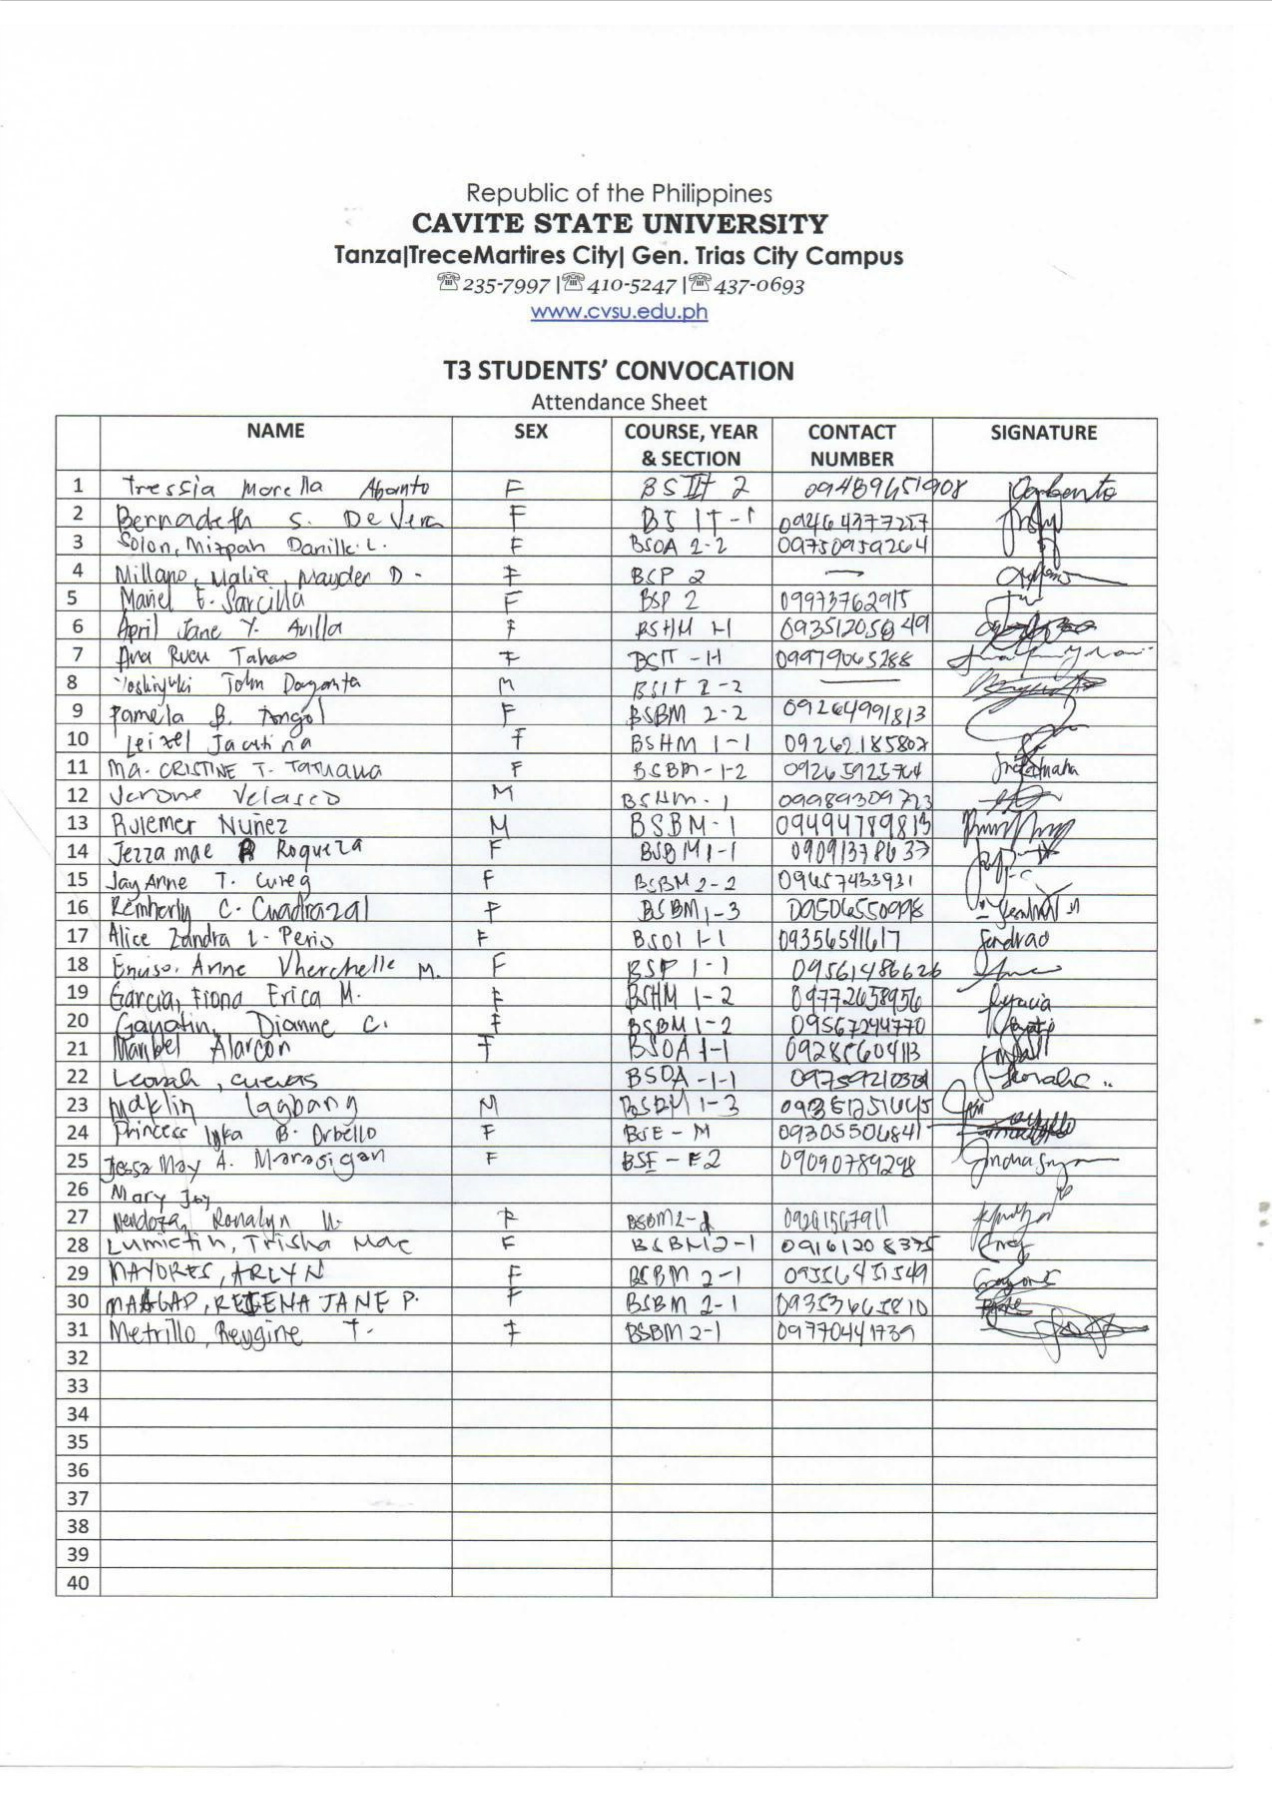 Republic of the Philippines
CAVITE STATE UNIVERSITY
Tanza|TreceMartires City| Gen. Trias City Campus
☏235-7997 |☏410-5247 |☏437-0693
www.cvsu.edu.ph
T3 STUDENTS’ CONVOCATION
Attendance Sheet
NAME SEX COURSE, YEAR & SECTION CONTACT NUMBER SIGNATURE
1 Tressia Morella Abanto F 2 09489651908
2 Bernadeth S. De Vera F BS IT-1 09464377227
3 Solon, Mizpah Danille L. F BSOA 2-2 09750959264
4 Millano, Malia, Mayder D. F BSP 2 —
5 E. Sarcilla F BSP 2 09973762915
6 April Jane Y. Avilla F BSHM 09351205849
7 Ana F BSIT 09979065288
8 Yoshiyuki John Dagonta M BSIT 2-2 —
9 Pamela B. Angol F BSBM 2-2 09264991813
10 Leizel Jacutina F BSHM 1-1 09262185807
11 Ma. CRISTINE T. F BSBM-1-2 09265925764
12 Jerome Velasco M BSHM-1 09989309723
13 Rulemer Nuñez M BSBM-1 09494789813
14 Jezza mae R F BSBM1-1 09091378637
15 Jay Anne T. Cureg F BSBM 2-2 09457433931
16 Kemberly C. Cuadrazal F BSBM1-3 09506550998
17 Alice Zandra L. Perio F 1-1 09356541617
18 Anne Vherchelle M. F BSP 1-1 09561486626
19 Garcia, Fiona Erica M. F BSHM 1-2 09772658956
20 Gayatin, Dianne C. F BSBM 1-2 09567244770
21 Maribel Alarcon F BSOA 1-1 09285604113
22 Leorah, cuevas BSOA -1-1
23 Maklin Lagbang M BSBM 1-3 09351251645
24 Princess B. Orbello F BSE - M 09305506841
25 Jessa May A. Marasigan F BSE - E2 09090789298
26 Mary Joy
27 Mendoza, Ronalyn F BSBM2-1 09261567911
28 Lumictin, Trisha Mae F BSBM2-1 09161208375
29 MAYORES, ARLYN F BSBM 2-1 09356451549
30 JANE P. F BSBM 2-1 09353665810
31 Metrillo, Reygine T. F BSBM 2-1 09770441739
32
33
34
35
36
37
38
39
40